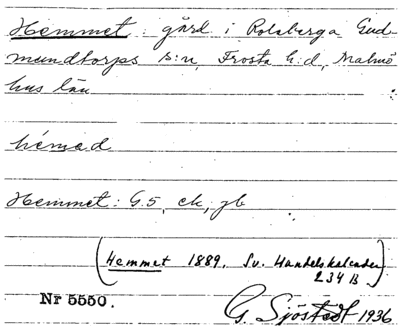 Hemmet : gård i Rolsberga Gud-
mundtorps s:n, Frosta h:d, Malmö
hus län
hémad
Hemmet: G.5, ek, jb
(Hemmet 1889, Sv. Handelskalender
234 B)
Nr 5550.
G. Sjöstedt 1936